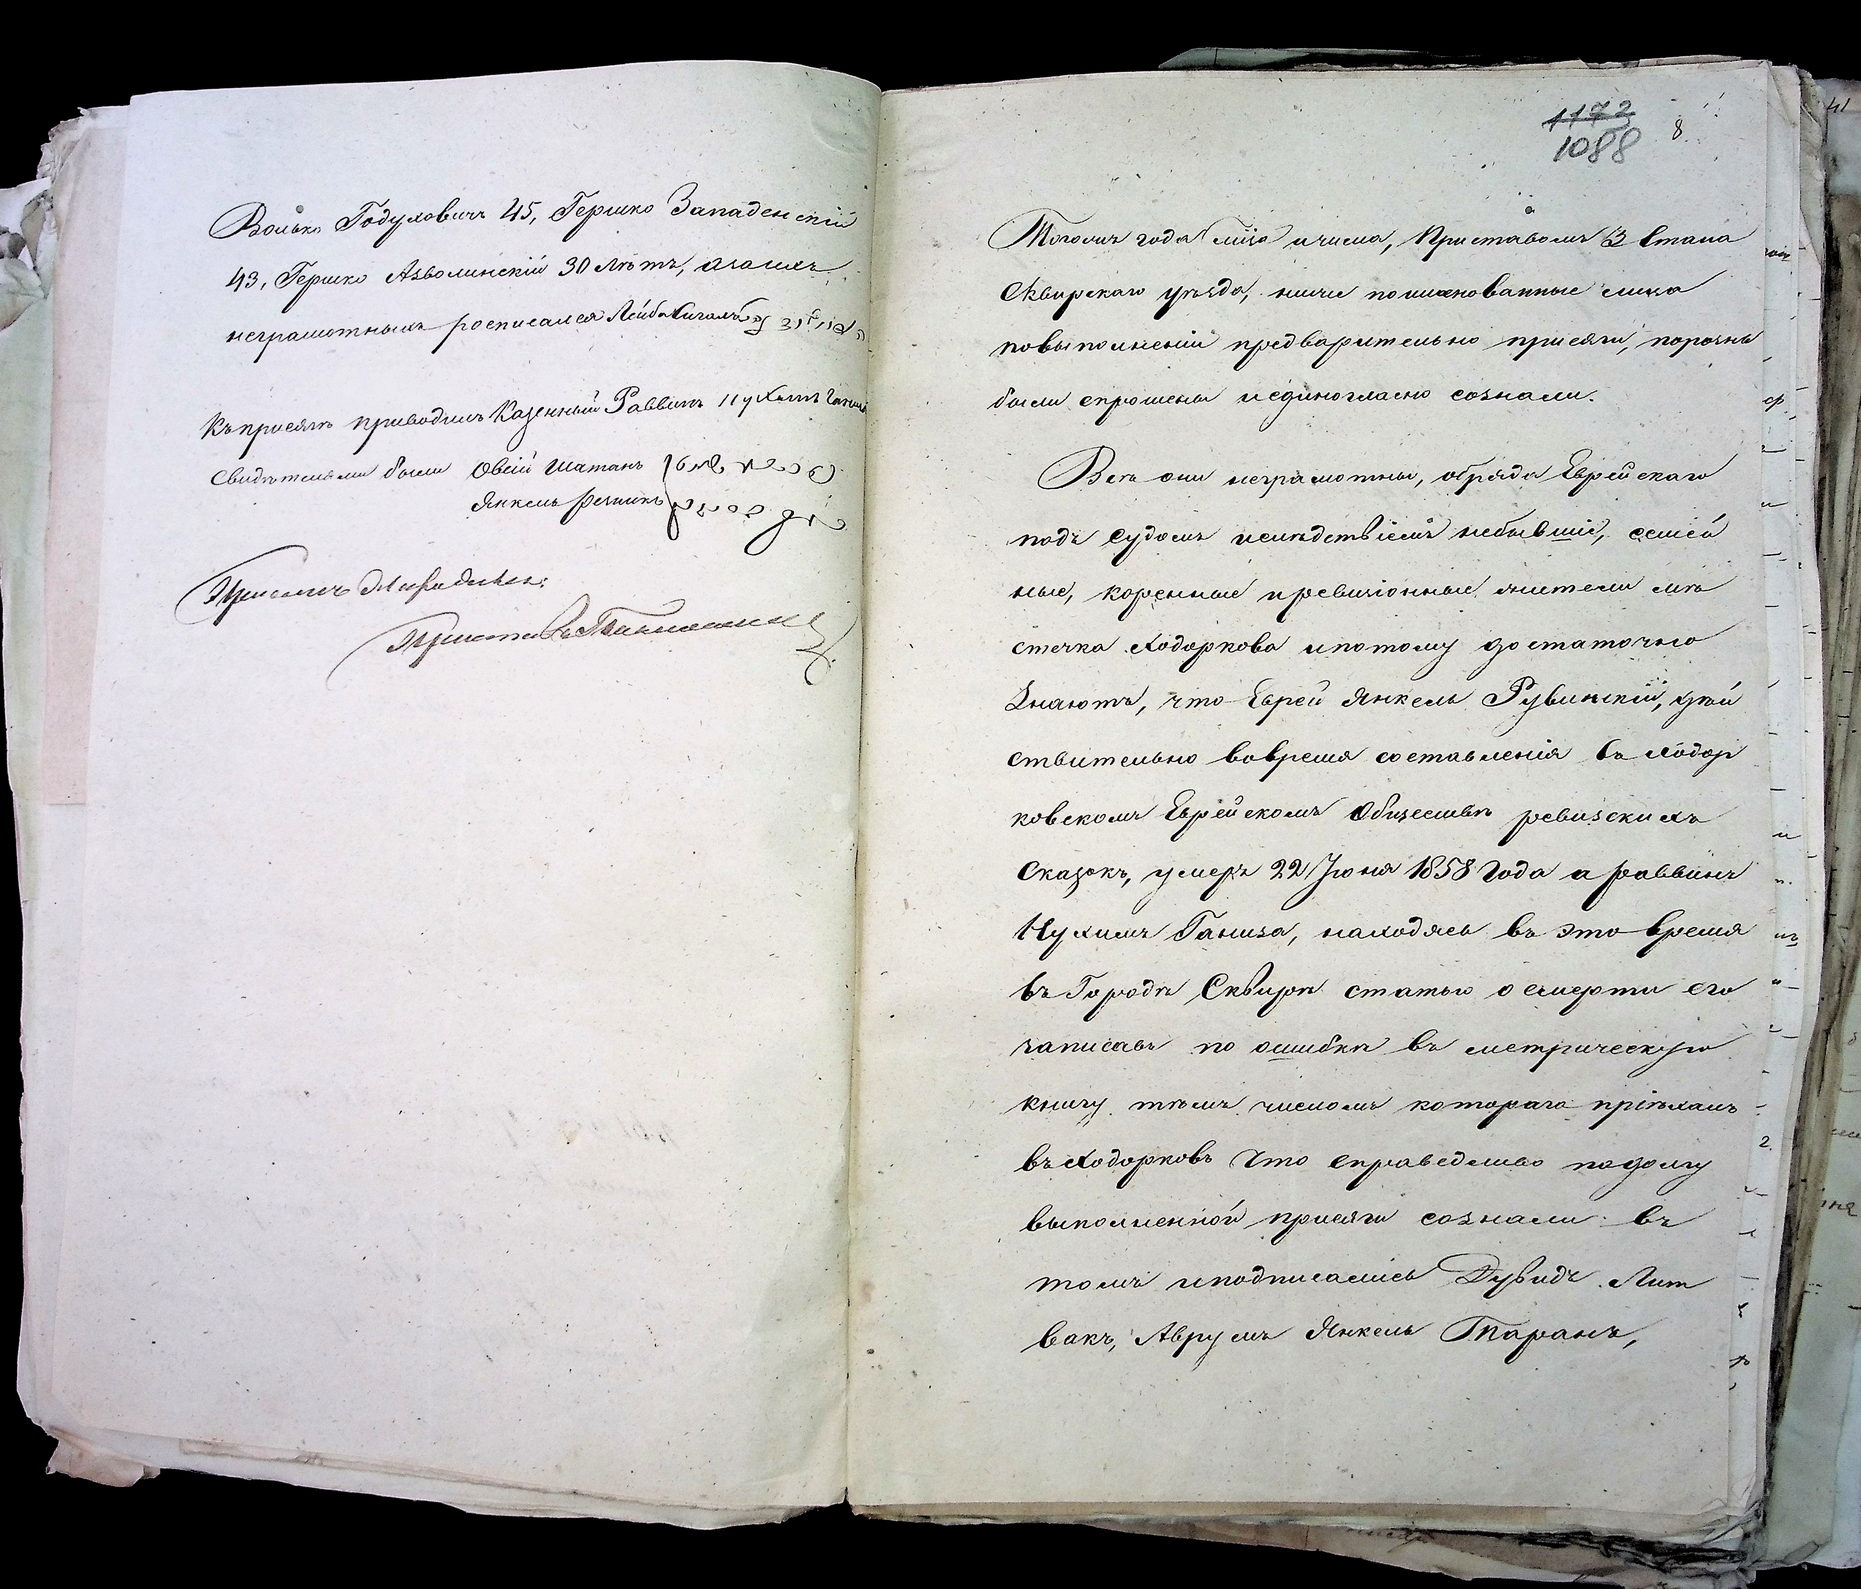 Волько Годулович 45, Гершко Западенскій
43, Гершко Азволинскій 30 лѣтъ, а за нихъ
неграмотныхъ росписался Лейба
Къ присягѣ приводилъ Казенный Раввинъ Нухимъ
Свидѣтелями были Овсій Шатанъ
Янкель Резникъ
Приставъ
1172
1088
8
Тогожъ года мѣсяца и числа, Приставомъ 3 Стана
Сквирскаго уѣзда, ниже поименованные лица
по выполненіи предварительно присяги, порознь
были спрошены и единогласно сознали.
Всѣ они неграмотны, обряда Еврейскаго
подъ судомъ и слѣдствіемъ небывшіе, семей
ные, коренные и ревизіонные жители мѣ
стечка Ходоркова и потому достаточно
знаютъ, что Еврей Янкель Рувинскій, дѣй
ствительно вовремя составленія въ Ходор
ковскомъ Еврейскомъ Обществѣ ревизскихъ
Сказокъ, умеръ 22 Іюня 1858 года а раввинъ
Нухимъ Ганиза, находясь въ это время
въ Городѣ Сквирѣ статью о смерти его
записавъ по ошибкѣ въ метрическую
книгу тѣмъ числомъ котораго пріѣхалъ
въ Ходорковъ Что справедливо по долгу
выполненной присяги сознали въ
томъ и подписались Дувидъ Лит
вакъ, Аврумъ Янкель Таранъ,